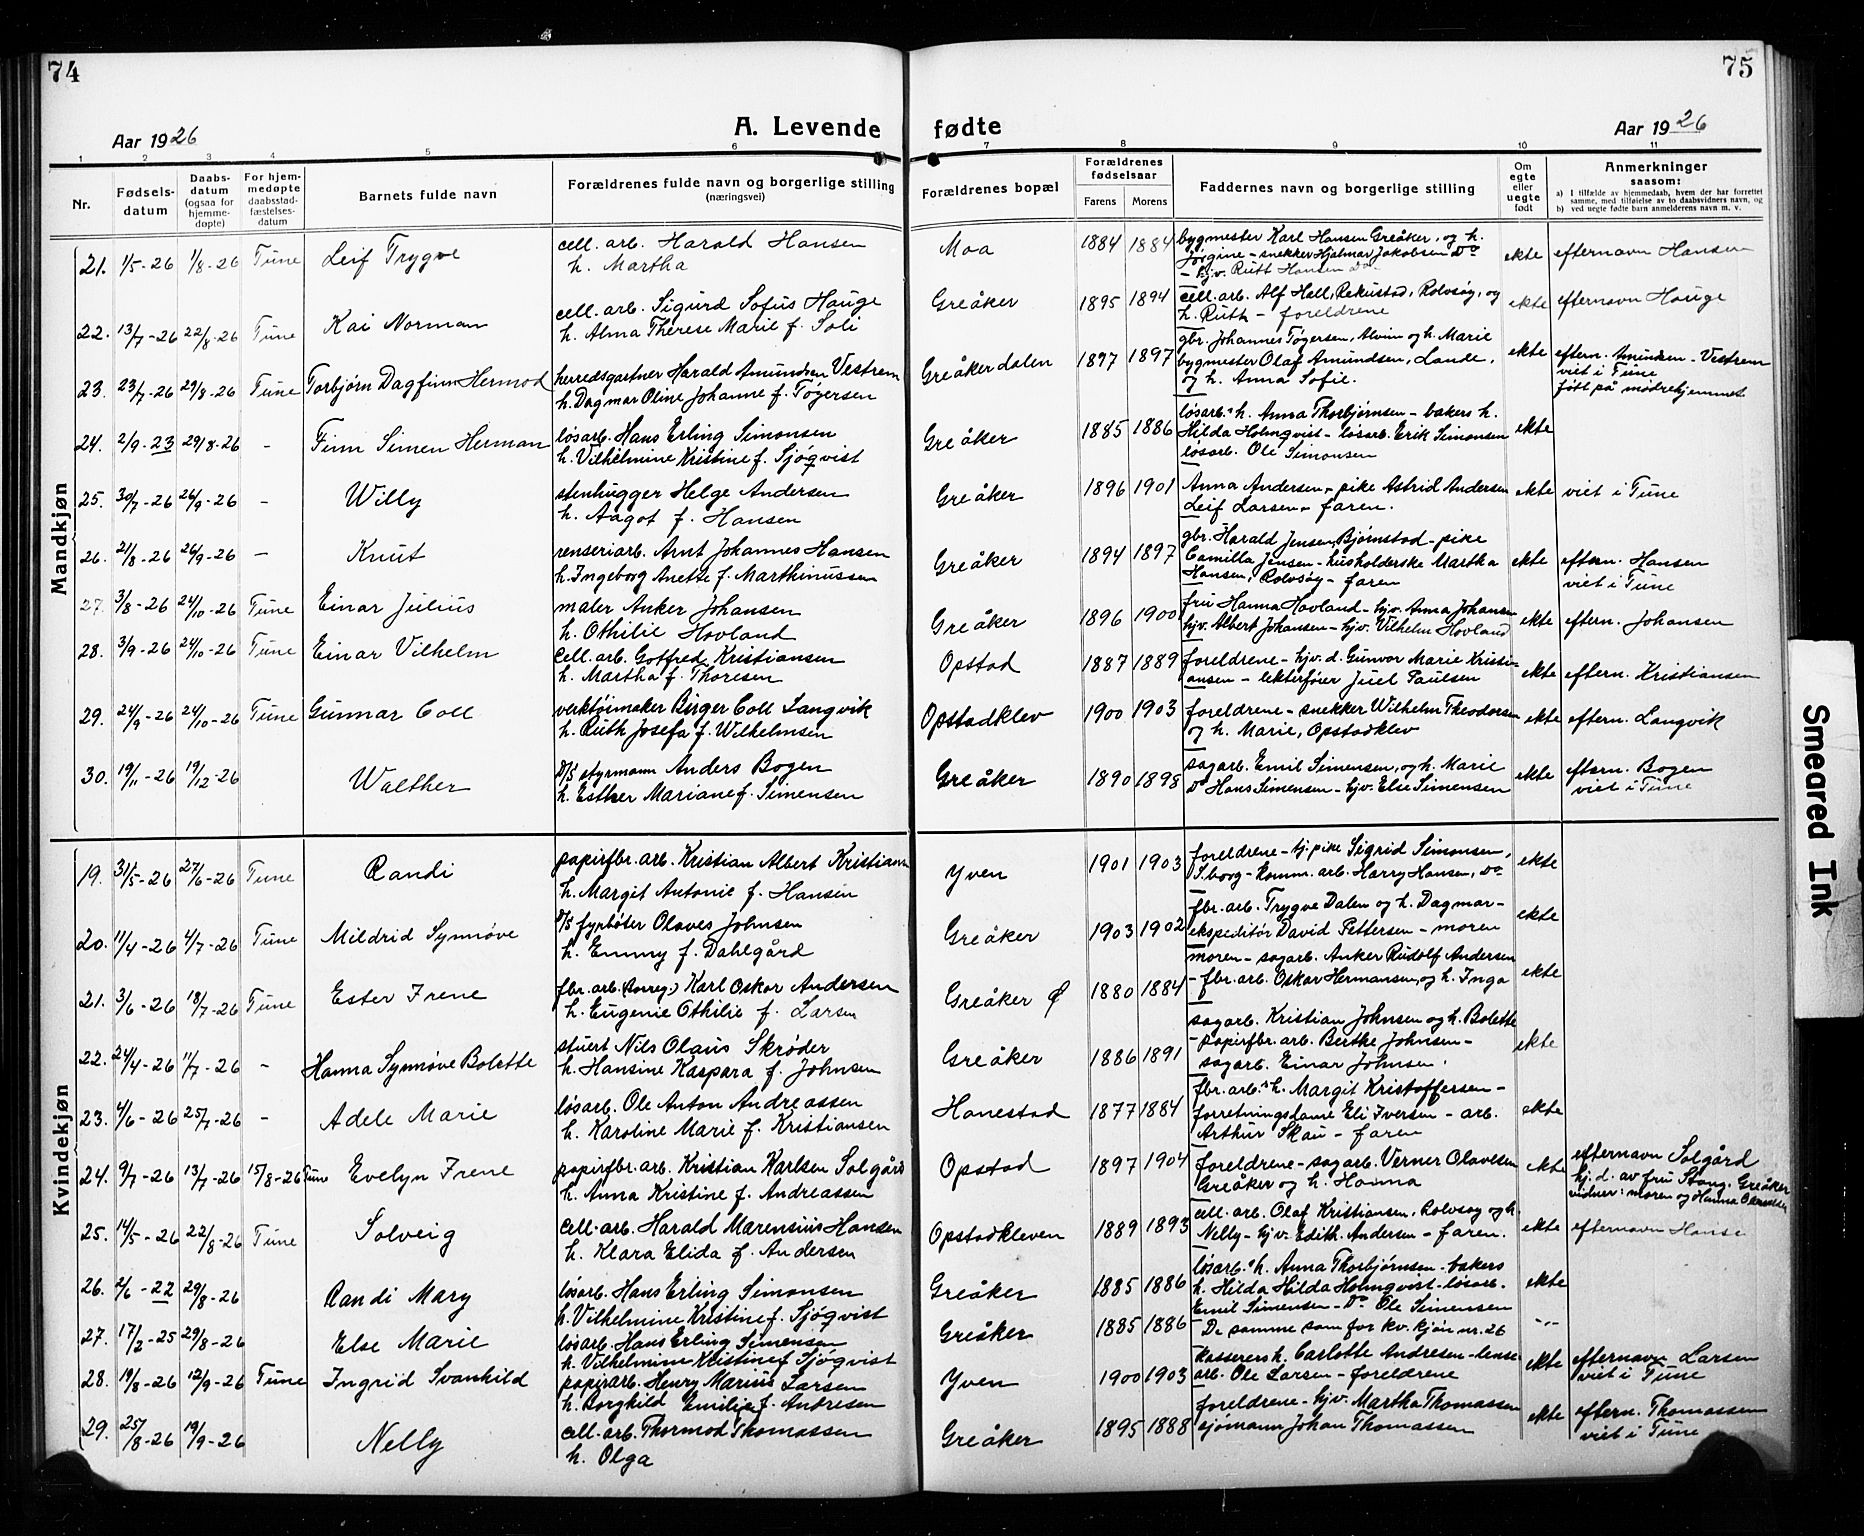 74
75
Aar 1926
A. Levende fødte
Aar 1926
1 2 3 4 5 6 7 8 9 10 11
Nr.
Fødsels-
datum
Daabs-
datum
(ogsaa for
hjemme-
døpte)
For hjem-
medøpte
daabsstad-
fæstelses-
datum
Barnets fulde navn
Forældrenes fulde navn og borgerlige stilling
(næringsvei)
Forældrenes bopæl
Forældrenes
fødselsaar
Farens Morens
Faddernes navn og borgerlige stilling
Om
egte
eller
uegte
født
Anmerkninger
saasom:
a) I tilfælde av hjemmedaab, hvem der har forrettet
samme, med tilføielse av to daabsvidners navn, og
b) ved uegte fødte barn anmelderens navn m. v.
Mandkjøn
21. 1/5-26 1/8-26 Tune Leif Trygve
cell. arb. Harald Hansen
h. Martha
Moa 1884 1884
bygmester Karl Hansen Greåker, og h.
Jørgine - snekker Hjalmar Jakobsen Do
- hjv. Ruth Hansen Do
ekte efternavn Hansen
22. 13/7-26 22/8-26 Tune Kai Norman
cell. arb. Sigurd Sofus Hauge
h. Alma Therese Marie f. Soli
Greåker 1895 1894
cell. arb. Alf Hall, Rekustad, Rolvsøy, og
h. Ruth - foreldrene
ekte efternavn Hauge
23. 23/7-26 29/8-26 Tune Torbjørn Dagfinn Hermod
herredsgartner Harald Amundsen Vestrem
h. Dagmar Oline Johanne f. Tøgersen
Greåkerdalen 1897 1897
gbr. Johannes Tøgersen, Alvim og h. Marie
bygmester Olaf Amundsen, Lande,
og h. Anna Sofie.
ekte eftern. Amundsen - Vestrem
viet i Tune
født på mødrehjemmet
24. 2/9-23 29/8-26 - Finn Simen Herman
løsarb. Hans Erling Simonsen
h. Vilhelmine Kristine f. Sjøqvist
Greåker 1885 1886
løsarb.s h. Anna Thorbjørnsen - bakers h.
Hilda Holmqvist - løsarb. Erik Simonsen
løsarb. Ole Simonsen
ekte
25. 30/7-26 26/9-26 - Willy
stenhugger Helge Andersen
h. Aagot f. Hansen
Greåker 1896 1901
Anna Andersen - pike Astrid Andersen
Leif Larsen - faren.
ekte viet i Tune
26. 21/8-26 26/9-26 - Knut
renseriarb. Arnt Johannes Hansen
h. Ingeborg Anette f. Marthinussen
Greåker 1894 1897
gbr. Harald Jensen, Bjørnstad - pike
Camilla Jensen - husholderske Martha
Hansen, Rolvsøy - faren
ekte eftern. Hansen
viet i Tune
27. 3/8-26 24/10-26 Tune Einar Julius
maler Anker Johansen
h. Othilie Hovland
Greåker 1896 1900
fru Hanna Hovland - hjv. Anna Johansen
hjv. Albert Johansen - hjv. Vilhelm Hovland
ekte eftern. Johansen
28. 3/9-26 24/10-26 Tune Einar Vilhelm
cell. arb. Gotfred Kristiansen
h. Martha f. Thoresen
Opstad 1887 1889
foreldrene - hjv. d. Gunvor Marie Kristi-
ansen - lekterfører Juel Paulsen
ekte eftern. Kristiansen
29. 24/9-26 24/10-26 Tune Gunnar Coll
verktøimaker Birger Coll Langvik
h. Ruth Josefa f. Wilhelmsen
Opstadklev 1900 1903
foreldrene - snekker Wilhelm Theodorsen
og h. Marie, Opstadklev
ekte eftern. Langvik
30. 19/11-26 19/12-26 Walther
D/S styrmann Anders Bogen
h. Esther Mariane f. Simensen
Greåker 1890 1898
sagarb. Emil Simensen, og h. Marie
Do Hans Simensen - hjv. Else Simensen
ekte eftern. Bogen
viet i Tune
Kvindekjøn
19. 31/5-26 27/6-26 Tune Randi
papirfbr. arb. Kristian Albert Kristiansen
h. Margit Antonie f. Hansen
Yven 1901 1903
foreldrene - hj. pike Sigrid Simonsen,
S.borg - komm. arb. Harry Hansen, Do
ekte
20. 11/4-26 4/7-26 Tune Mildrid Synnøve
D/S fyrbøter Olaves Johnsen
h. Emmy f. Dahlgård
Greåker 1903 1902
fbr. arb. Trygve Dalen og h. Dagmar -
ekspeditør David Pettersen - moren
ekte
21. 3/6-26 18/7-26 Tune Ester Irene
fbr. arb. (borreg.) Karl Oskar Andersen
h. Eugenie Othilie f. Larsen
Greåker Ø 1880 1884
moren - sagarb. Anker Rudolf Andersen
- fbr. arb. Oskar Hermansen, og h. Inga
ekte
22. 24/4-26 11/7-26 - Hanna Synnøve Bolette
stuert Nils Olaus Skrøder
h. Hansine Kaspara f. Johnsen
Greåker 1886 1891
sagarb. Kristian Johnsen og h. Bolette
- papirfbr. arb. Berthe Johnsen -
sagarb. Einar Johnsen.
ekte
23. 4/6-26 25/7-26 - Adele Marie
løsarb. Ole Anton Andreassen
h. Karoline Marie f. Kristiansen
Hanestad 1877 1884
fbr. arb.s h. Margit Kristoffersen -
forretningsdame Eli Iversen - arb.
Arthur Skau - faren
ekte
24. 9/7-26 13/7-26 15/8-26 Tune Evelyn Irene
papirfbr. arb. Kristian Karlsen Solgård
h. Anna Kristine f. Andreassen
Opstad 1897 1904
foreldrene - sagarb. Verner Olavesen
Greåker og h. Hanna
ekte efternavn Solgård
hj. d. av fru Stang, Greåker
vidner: moren og Hanna Olavesen
25. 14/5-26 22/8-26 Tune Solveig
cell. arb. Harald Marensius Hansen
h. Klara Elida f. Andersen
Opstadkleven 1889 1893
cell. arb. Olaf Kristiansen, Rolvsøy og h.
Nelly - hjv. Edith Andersen - faren.
ekte efternavn Hanse
26. 2/6-22 29/8-26 Randi Mary
løsarb. Hans Erling Simonsen
h. Vilhelmine Kristine f. Sjøqvist
Greåker 1885 1886
løsarb.s h. Anna Thorbjørnsen - bakers
h. Hilda Hilda Holmqvist - løsarb.
Emil Simensen - Do Ole Simensen
ekte
27. 17/2-25 29/8-26 Else Marie
løsarb. Hans Erling Simensen
h. Vilhelmine Kristine f. Sjøqvist
Greåker 1885 1886
De samme som for kv. kjøn nr. 26
-"-
28. 19/8-26 12/9-26 Tune Ingrid Svanhild
papirarb. Henry Marius Larsen
h. Borghild Emilie f. Andresen
Yven 1900 1903
kasserers h. Carlotte Andresen - lense
arb. Ole Larsen - foreldrene
ekte efternavn Larsen
viet i Tune
29. 25/8-26 19/9-26 Nelly
cell. arb. Thormod Thomassen
h. Olga
Greåker 1895 1888
foreldrene - hjv. Martha Thomassen
sjømann Johan Thomassen
ekte eftern. Thomassen
viet i Tune
Smeared Ink